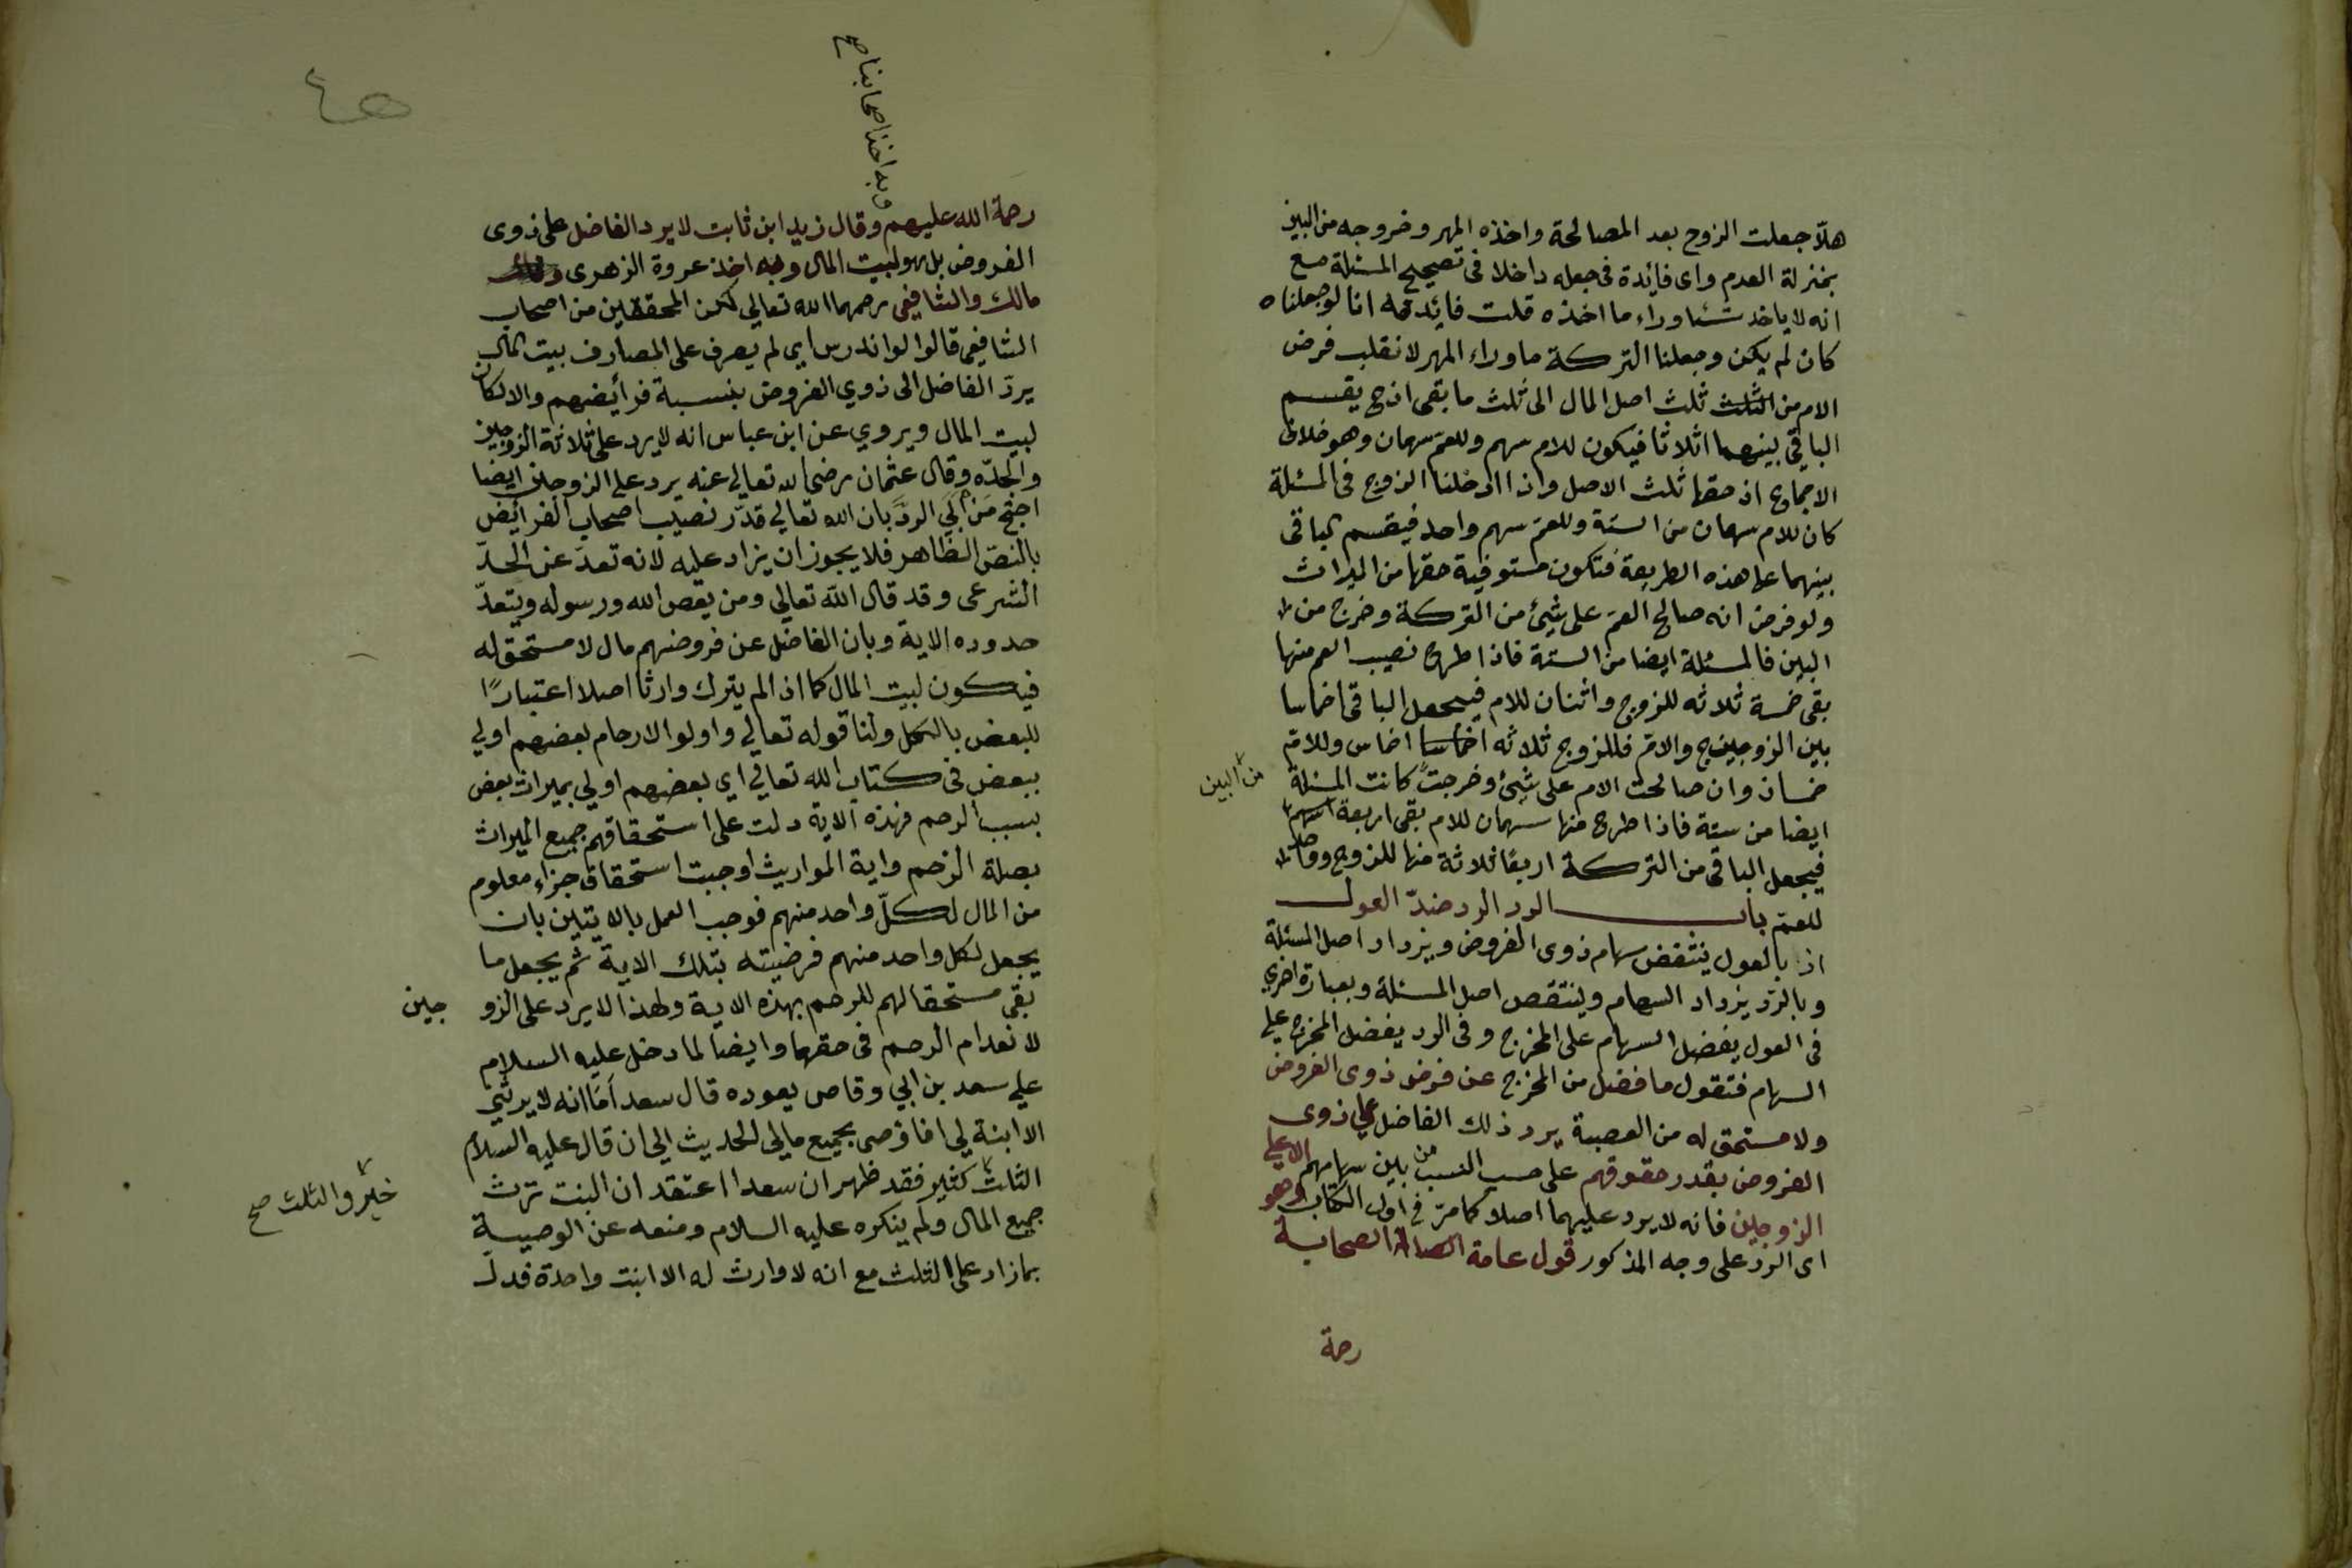 هلّا جعلت الزوج بعد المصالحة واخذه المهر وخروجه من البين
بمنزلة العدم واى فايدة فى جعله داخلا فى تصحيح المسئلة مع
انه لا ياخذ شئا وراء ما اخذه قلت فايدته انا لو جعلناه
كان لم يكن وجعلنا التركة ما وراء المهر لانقلب فرض
الام من الثلث ثلث اصل المال الى ثلث ما بقى اذ ح يقسم
الباقى بينهما اثلاثا فيكون للام سهم وللعم سهمان وهو خلاف
الاجماع اذ حقها ثلث الاصل واذا ادخلنا الزوج فى المسئلة
كان للام سهمان من الستة وللعم سهم واحد فيقسم الباقى
بينهما على هذه الطريقة فتكون مستوفية حقها من الميراث
ولو فرض انه صالح العم على شيئ من التركة وخرج من
البين فالمسئلة ايضا من الستة فاذا طرح نصيب العم منها
بقى خمسة ثلاثه للزوج واثنان للام فيجعل الباقى اخماسا
بين الزوج والام فللزوج ثلاثه اخماس وللام
خمسان وان صالحت الام على شيئ وخرجت كانت المسئلة
من البين
ايضا من ستة فاذا طرح منها سهمان للام بقى اربعة اسهم
فيجعل الباقى من التركة اربعا ثلاثة منها للزوج وواحد
للعم باب الرد الرد ضدّ العول
اذ بالعول ينتقض سهام ذوى الفروض ويزداد اصل المسئلة
وبالرّد يزداد السهام وينتقص اصل المسئلة وبعبارة اخري
فى العول يفضل السهام على المخرج وفى الرد يفضل المخرج علي
السهام فتقول ما فضل من المخرج عن فرض ذوى الفروض
ولا مستحق له من العصبة يرد ذلك الفاضل علي ذوى
الفروض بقدر حقوقهم على حسب النسب من بين سهامهم الا علي
الزوجين فانه لا يرد عليهما اصلا كما مرّ فى اول الكتاب وهو
اى الرد على وجه المذكور قول عامة الصحابة
رحمة
وبه اخذ اصحابنا صح
رحمة الله عليهم وقال زيد ابن ثابت لا يرد الفاضل على ذوى
الفروض بل هو لبيت المال وبه اخذ عروة الزهرى
مالك والشافيى رحمهما الله تعالي لكن المحققين من اصحاب
الشافيى قالوا لو اندرس اي لم يصرف على المصارف بيت المال
يردّ الفاضل الى ذوي الفروض بنسبة فرأيضهم والا لكان
لبيت المال ويروي عن ابن عباس انه لا يرد على ثلاثة الزوجين
والجدّه وقال عثمان رضى الله تعالي عنه يرد على الزوجين ايضا
احتج من ابي الردّ بان الله تعالي قدّر نصيب اصحاب الفرأيض
بالنصّ الظّاهر فلا يجوز ان يزاد عليه لانه تعدّ عن الحدّ
الشرعى وقد قال الله تعالي ومن يعص الله ورسوله ويتعدّ
حدوده الاية وبان الفاضل عن فروضهم مال لا مستحق له
فيكون لبيت المال كما اذا لم يترك وارثا اصلا اعتبارًا
للبعض بالكل ولنا قوله تعالي واولو الارحام بعضهم اولي
ببعض فى كتاب الله تعالي اي بعضهم اولي بميراث بعض
بسبب الرحم فهذه الاية دلت على استحقاقهم جميع الميراث
بصلة الرحم واية المواريث اوجبت استحقاق جزاء معلوم
من المال لكلّ واحد منهم فوجب العمل بالايتين بان
يجعل لكل واحد منهم فرضيته بتلك الاية ثم يجعل ما
بقى مستحقا لهم للرحم بهذه الاية ولهذا لا يرد على الزوجين
لانعدام الرحم فى حقهما وايضا لما دخل عليه السلام
علي سعد بن ابي وقاص يعوده قال سعد أما انه لا يرثني
الا ابنة لي افاوصى بجميع مالي الحديث الي ان قال عليه السلام
الثلث كثير فقد ظهر ان سعدا اعتقد ان البنت ترث
خير والثلث صح
جميع المال ولم ينكره عليه السلام ومنعه عن الوصية
بما زاد على الثلث مع انه لا وارث له الا ابنت واحدة فدلّ